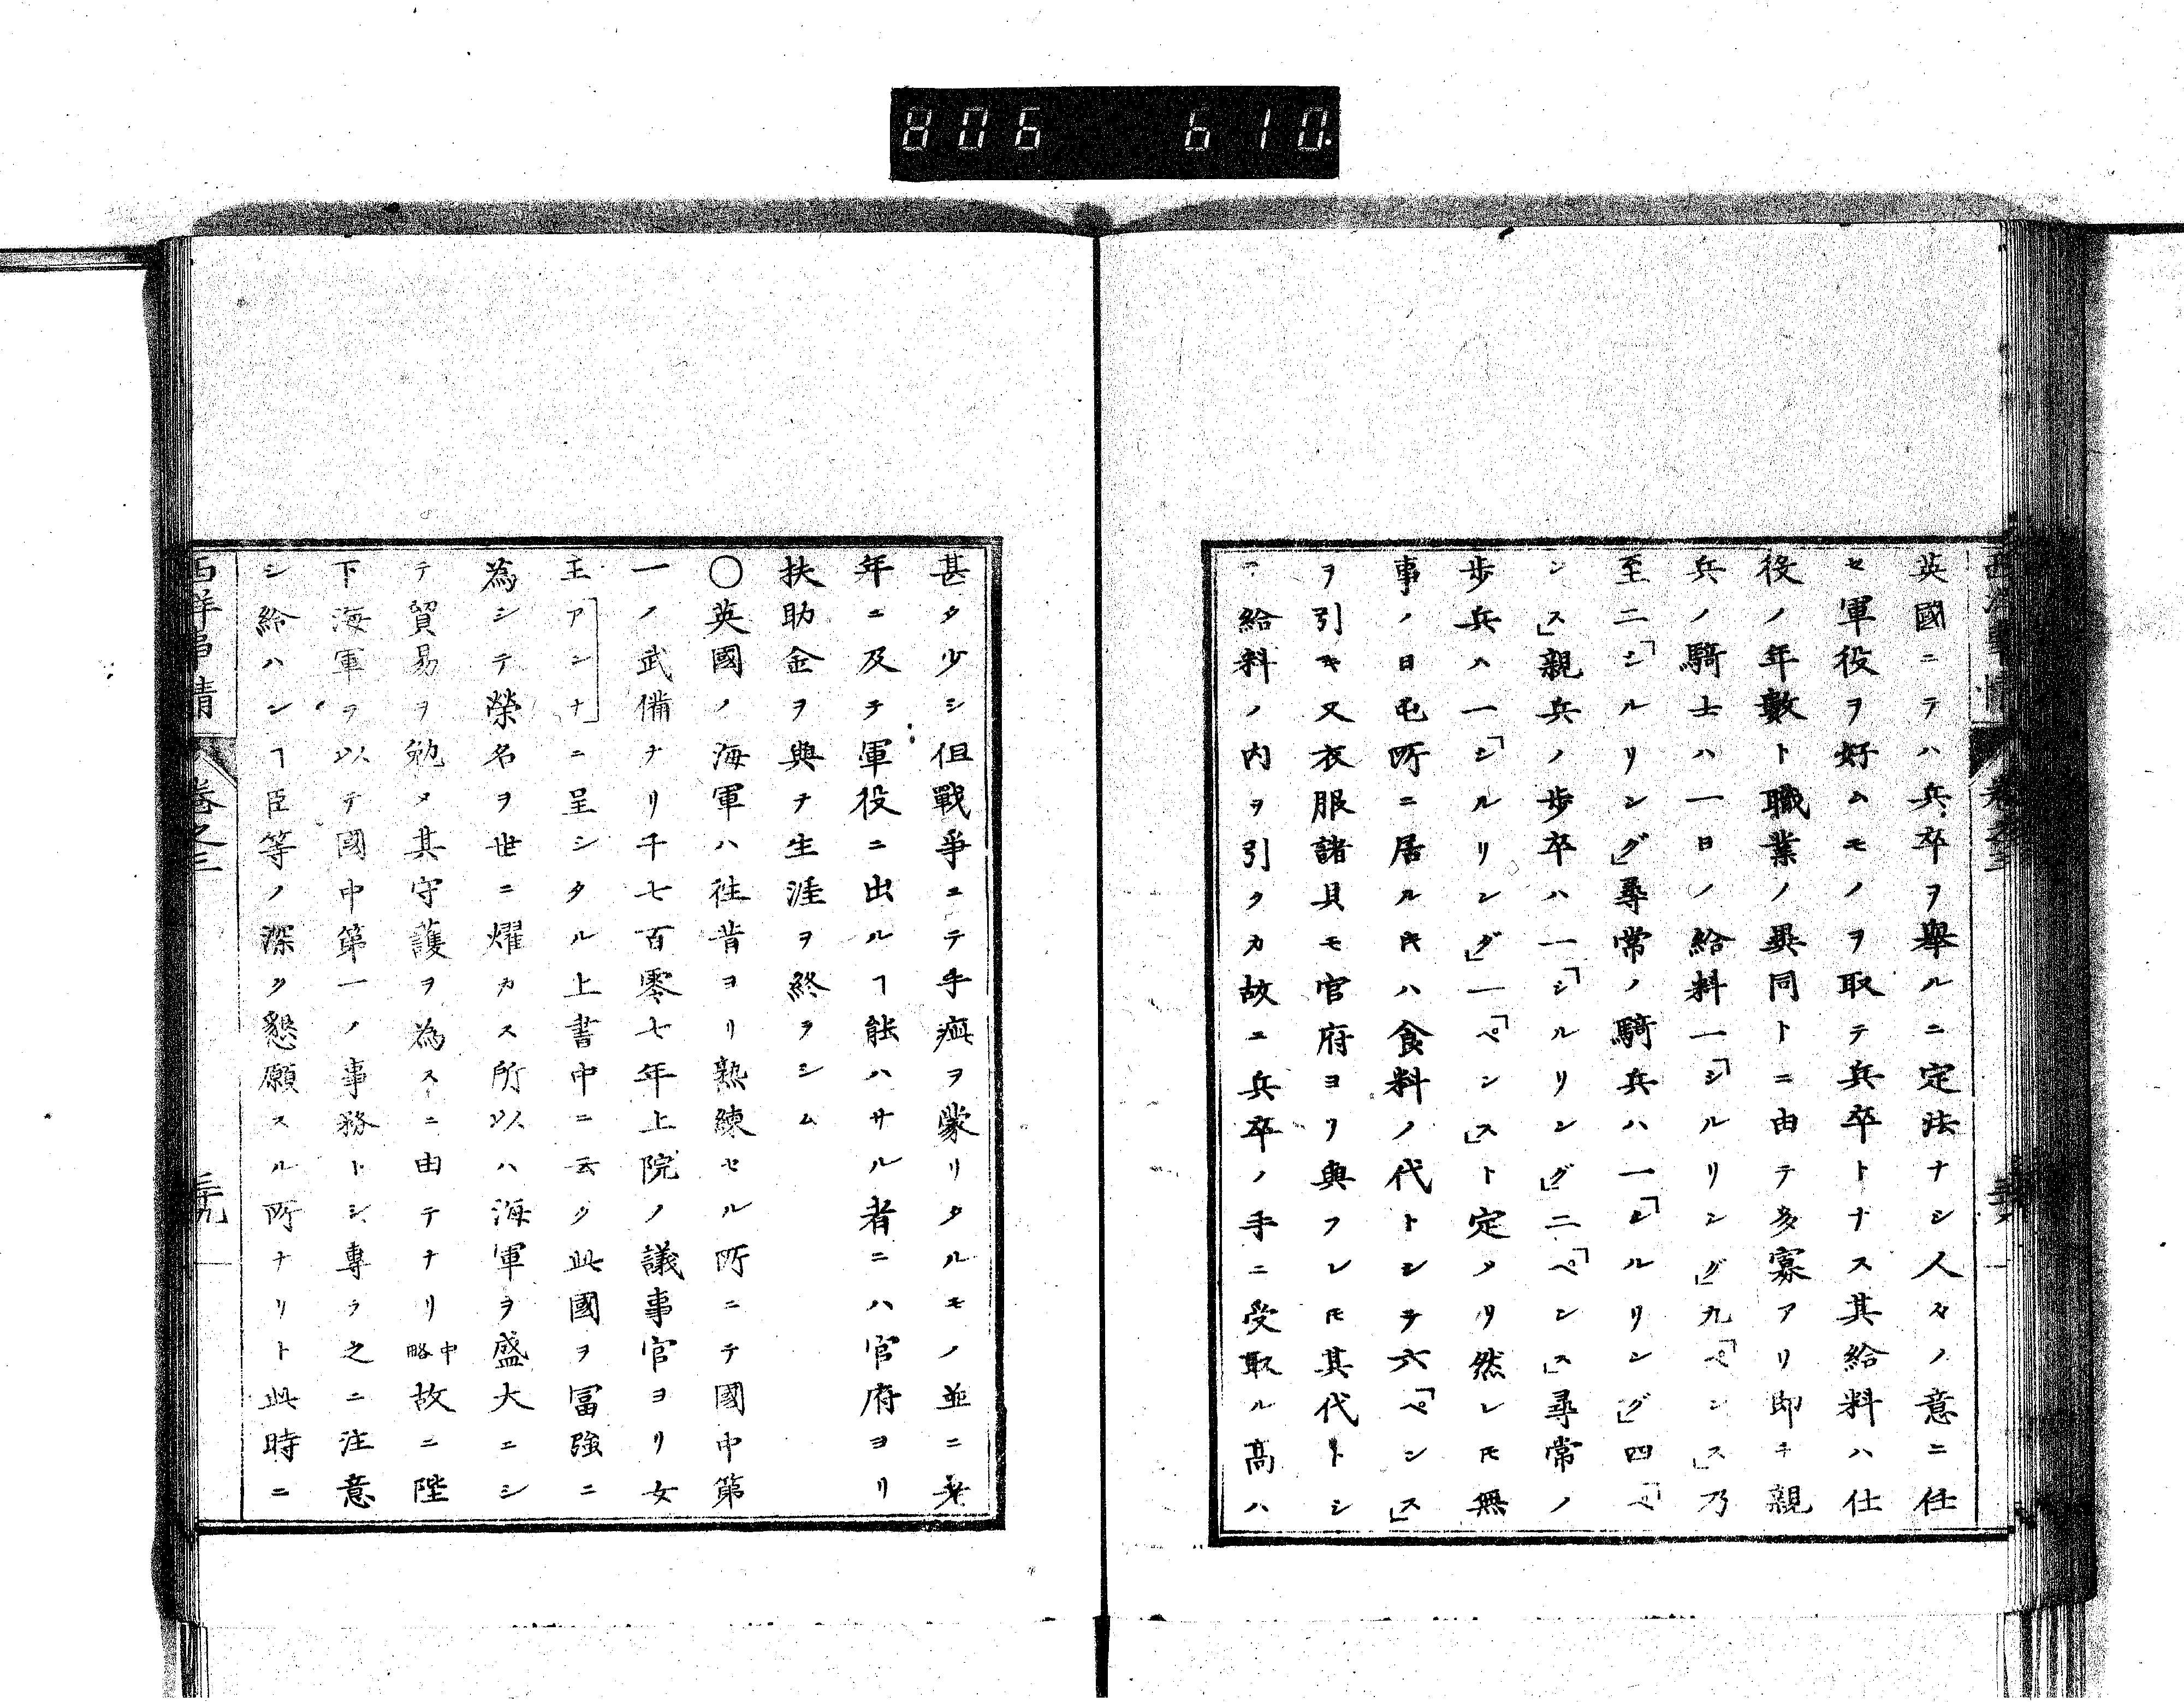 806 610.
英國ニテハ兵卒ヲ擧ルニ定法ナシ人々ノ意ニ任
セ軍役ヲ好ムモノヲ取テ兵卒トナス其給料ハ仕
役ノ年數ト職業ノ異同トニ由テ多寡アリ即チ親
兵ノ騎士ハ一日ノ給料一「シルリング」九「ペンス」乃
至二「シルリング」尋常ノ騎兵ハ一「シルリング」四「ペ
ンス」親兵ノ歩卒ハ一「シルリング」二「ペンス」尋常ノ
歩兵ハ一「シルリング」一「ペンス」ト定メリ然レ𪜈無
事ノ日屯所ニ居ル𬼀ハ食料ノ代トシテ六「ペンス」
ヲ引キ又衣服諸具モ官府ヨリ與フレ𪜈其代トシ
テ給料ノ内ヲ引クカ故ニ兵卒ノ手ニ受取ル高ハ
甚タ少シ但戰爭ニテ手疵ヲ蒙リタルモノ並ニ老
年ニ及テ軍役ニ出ルヿ能ハサル者ニハ官府ヨリ
扶助金ヲ與テ生涯ヲ終ヲシム
〇英國ノ海軍ハ徃昔ヨリ熟練セル所ニテ國中第
一ノ武備ナリ千七百零七年上院ノ議事官ヨリ女
王「アンナ」ニ呈シタル上書中ニ云ク此國ヲ冨強ニ
為シテ榮名ヲ世ニ燿カス所以ハ海軍ヲ盛大ニシ
テ貿易ヲ勉メ其守護ヲ為スニ由テナリ中略故ニ陛
下海軍ヲ以テ國中第一ノ事務トシ專ラ之ニ注意
シ給ハンヿ臣等ノ深ク懇願スル所ナリト此時ニ
西洋事情 卷之三 三十九